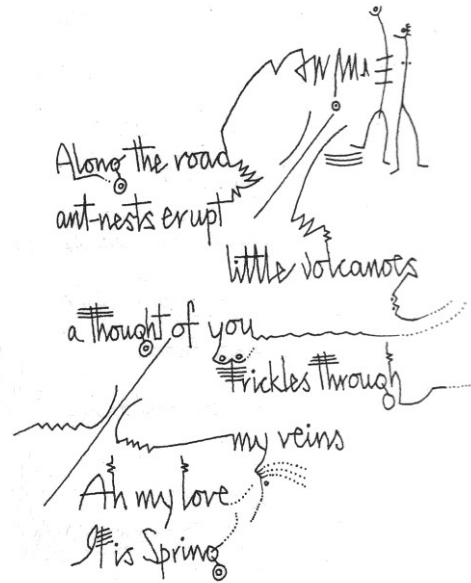 Along the road
ant-nests erupt
little volcanoes
a thought of you
trickles through
my veins
Ah my love
It is Spring